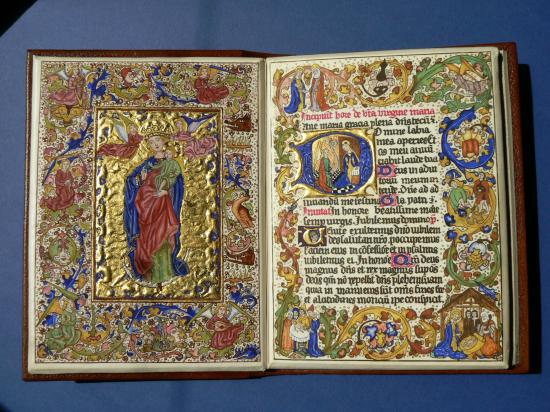 Incipiunt hore de bta virgine maria
Aue maria gracia plena dns tecū
Domine labia
mea aperies Et
os meū annū
ciabit laudē tuā
Deus in adiu
toriū meum in
tende Dne ad ad
iuuandū me festina Gla patri
In honore beatissime mari
virgis Jubilemus domino
exultemus dno iubilem
deo salutari nro preoccupemus
faciem eius in cōfessiōe et in psalmis
iubilemus ei In honore Qm deus
magnus dns et rex magnus sup os
deos qm nō repellet dns plebem suam
quia in manu eius sūt oms fines ter
et altitudines montiū ipe conspicit